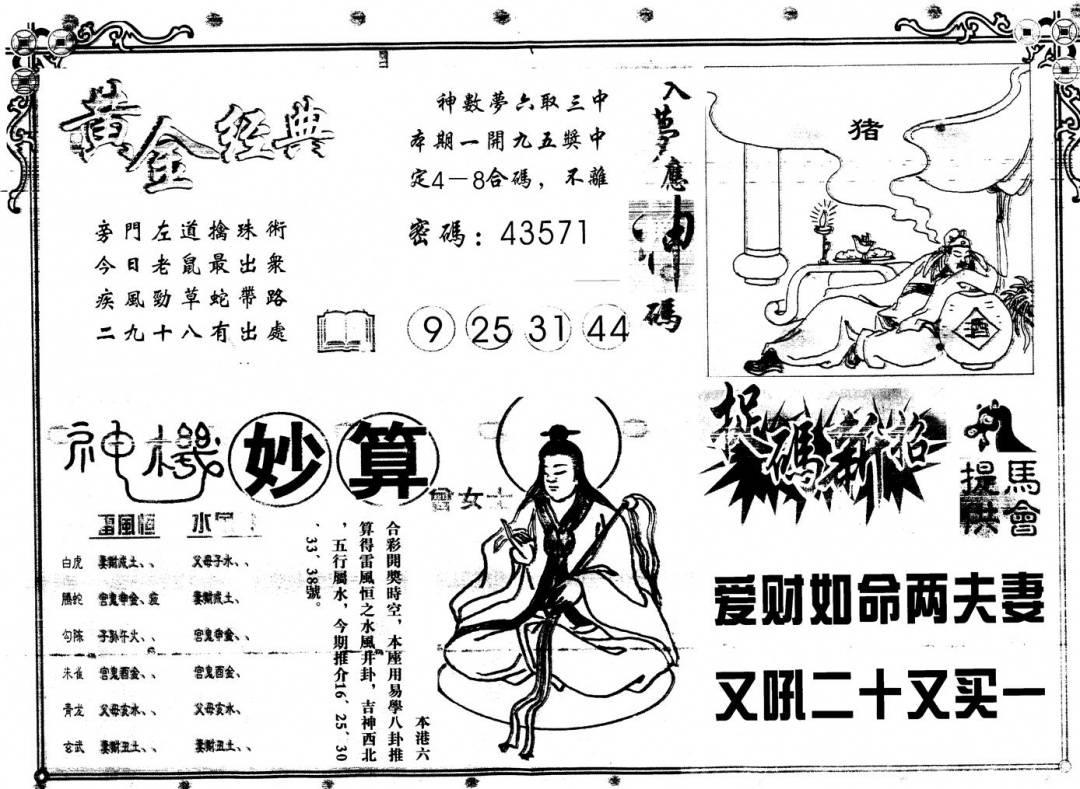 黄金经典
旁門左道擒珠術
今日老鼠最出衆
疾風勁草蛇帶路
二九十八有出處
神數夢六取三中
本期一開九五獎中
定4－8合碼，不離
密碼：43571
9 25 31 44
入夢應神碼
猪
酒
神機妙算
曾女士
雷風恒 水
白虎 妻財戌土、、 父母子水、、
騰蛇 官鬼申金、 妻財戌土、
勾陈 子孙午火、、 官鬼申金、、
朱雀 官鬼酉金、、 官鬼酉金、
青龙 父母亥水、、 父母亥水、
玄武 妻財丑土、、 妻財丑土、、
本港六
合彩開獎時空，本座用易學八卦推
算得雷風恒之水風井卦，吉神西北
，五行屬水，今期推介16、25、30
、33、38號。
捉碼新招
馬會
提供
爱财如命两夫妻
又吼二十又买一